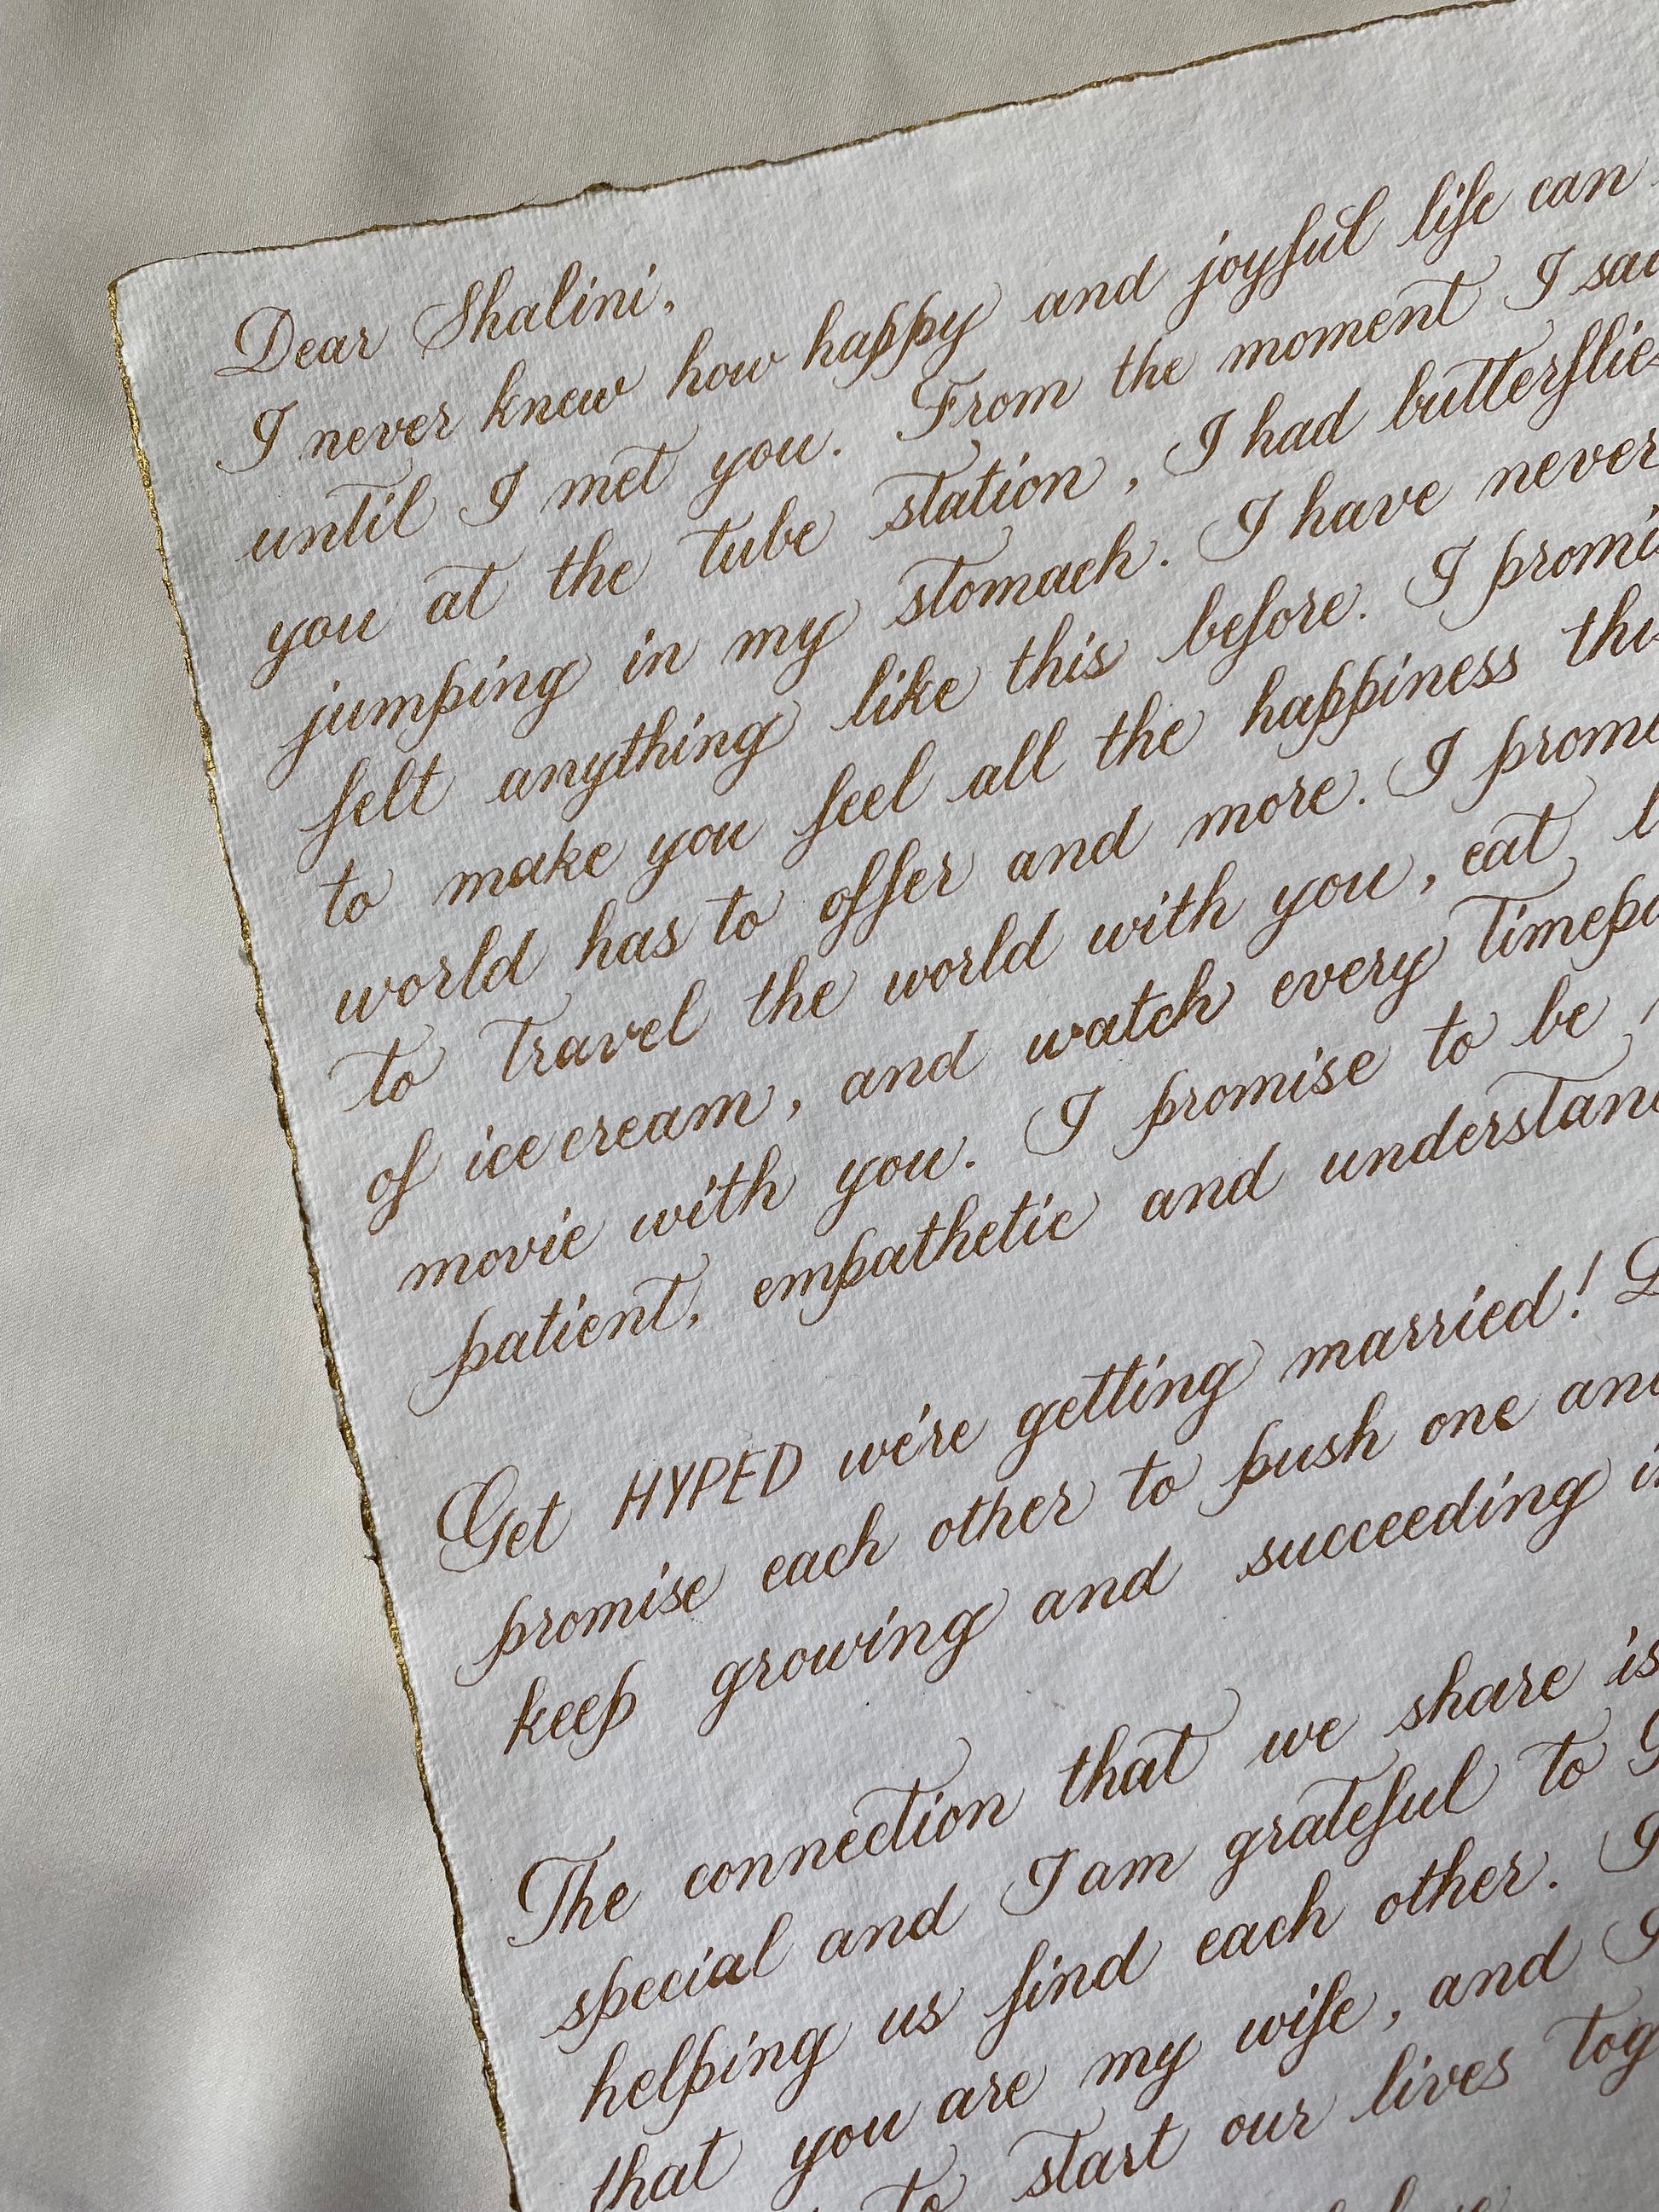 Dear Shalini,
I never knew how happy and joyful life can
until I met you. From the moment I sa
you at the tube station, I had butterflie
jumping in my stomach. I have never
felt anything like this before. I promi
to make you feel all the happiness thi
world has to offer and more. I prom
to travel the world with you, eat l
of ice cream, and watch every timep
movie with you. I promise to be
patient, empathetic and understan
Get HYPED we're getting married! L
promise each other to push one and
keep growing and succeeding i
The connection that we share is
special and I am grateful to G
helping us find each other. I
that you are my wife, and I
to start our lives tog